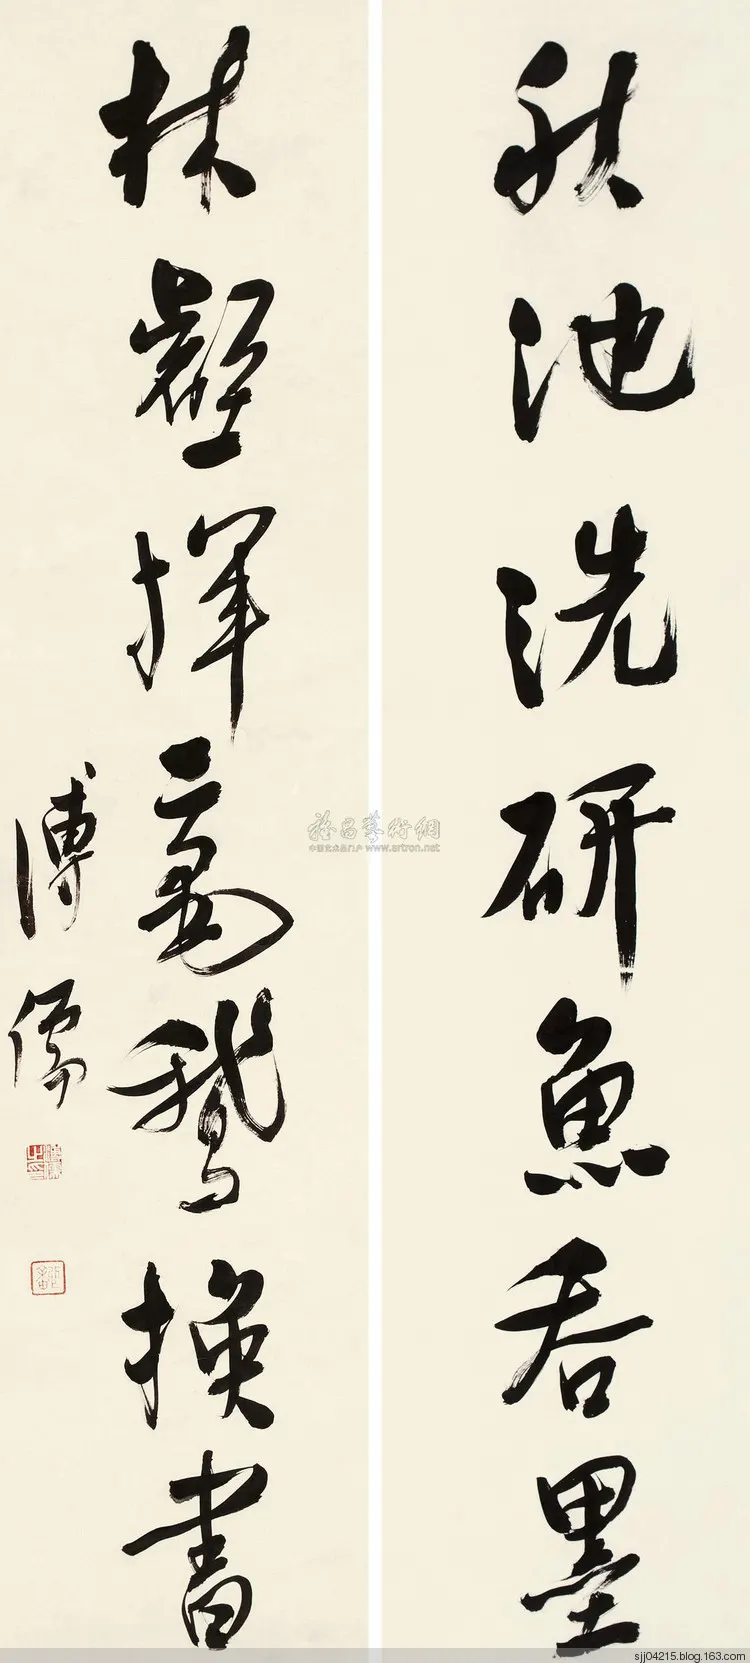 秋池洗研魚吞墨
林壑揮毫鵝換書
溥儒
雅昌藝術網
中国艺术品门户 www.artron.net
sjj04215.blog.163.com